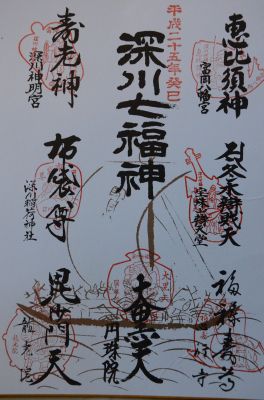 平成二十五年癸巳
深川七福神
恵比須神
富岡八幡宮
冬木弁財天
福禄寿
心行寺
大黒天
円珠院
寿老神
深川神明宮
布袋尊
深川稲荷神社
毘沙門天
龍光院